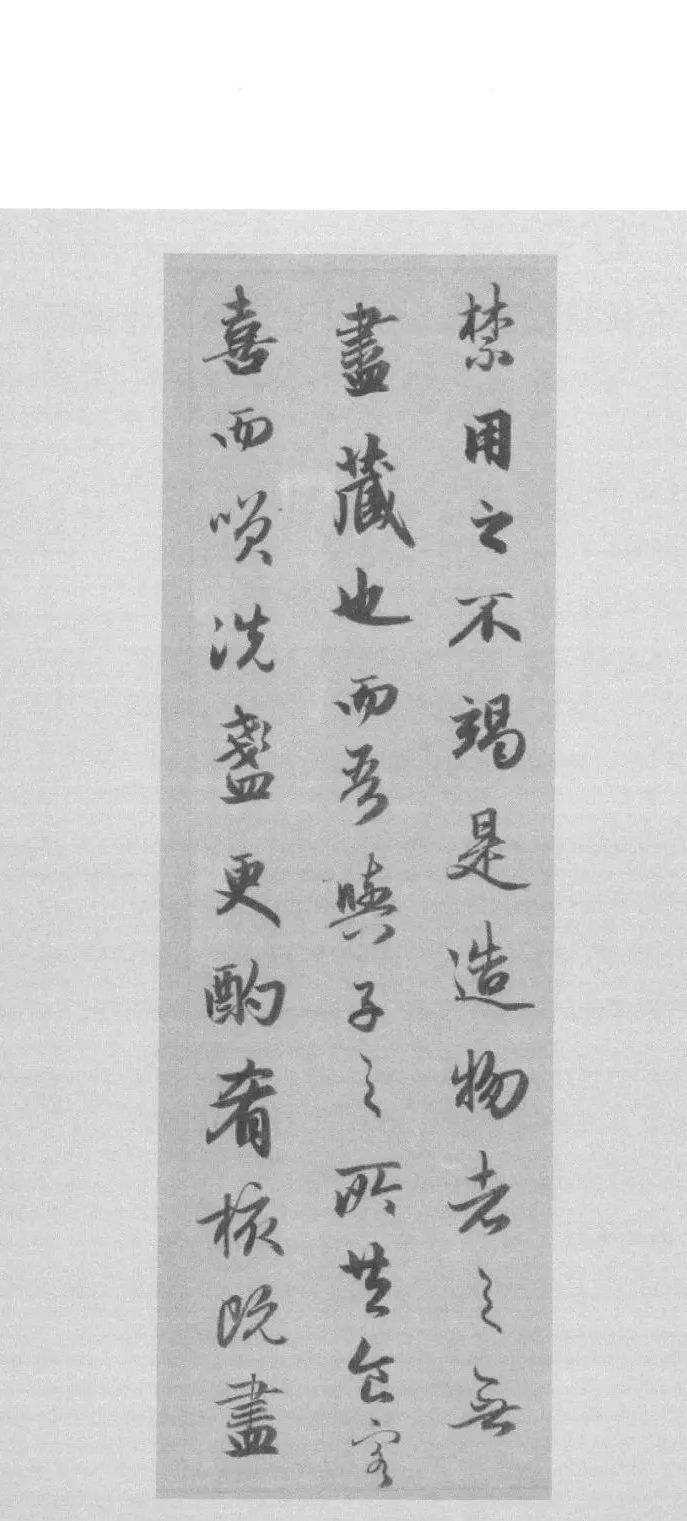 禁用之不竭是造物者之無
盡藏也而吾與子之所共食客
喜而笑洗盞更酌肴核既盡